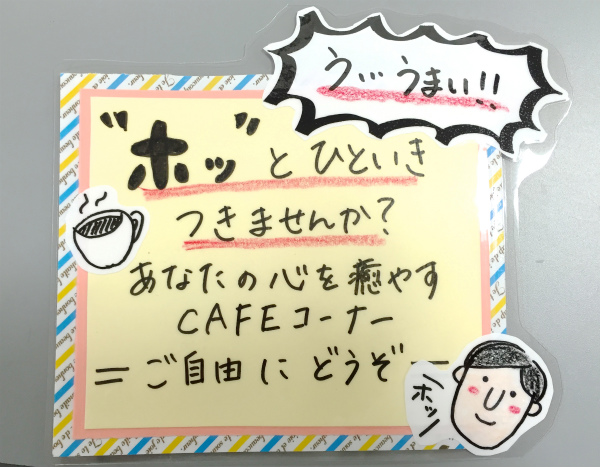 う…うまい!!
"ホッ"とひといき
つきませんか?
あなたの心を癒やす
CAFEコーナー
=ご自由にどうぞ=
ホッ